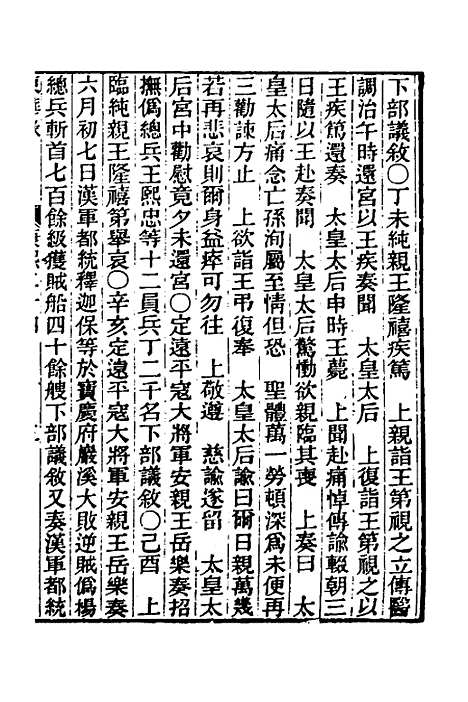 下部議敘〇丁未純親王隆禧疾篤　上親詣王第視之立傳醫
調治午時還宮以王疾奏聞　太皇太后　上復詣王第視之以
王疾篤還奏　太皇太后申時王薨　上聞赴痛悼傳諭輟朝三
日隨以王赴奏聞　太皇太后驚慟欲親臨其喪　上奏曰　太
皇太后痛念亡孫洵屬至情但恐　聖體萬一勞頓深爲未便再
三勸諫方止　上欲詣王弔復奉　太皇太后諭曰爾日親萬幾
若再悲哀則爾身益瘁可勿往　上敬遵　慈諭遂留　太皇太
后宮中勸慰竟夕未還宮〇定遠平寇大將軍安親王岳樂奏招
撫僞總兵王熙忠等十二員兵丁二千名下部議敘〇己酉　上
臨純親王隆禧第舉哀〇辛亥定遠平寇大將軍安親王岳樂奏
六月初七日漢軍都統釋迦保等於寶慶府巖溪大敗逆賊僞楊
總兵斬首七百餘級獲賊船四十餘艘下部議敘又奏漢軍都統